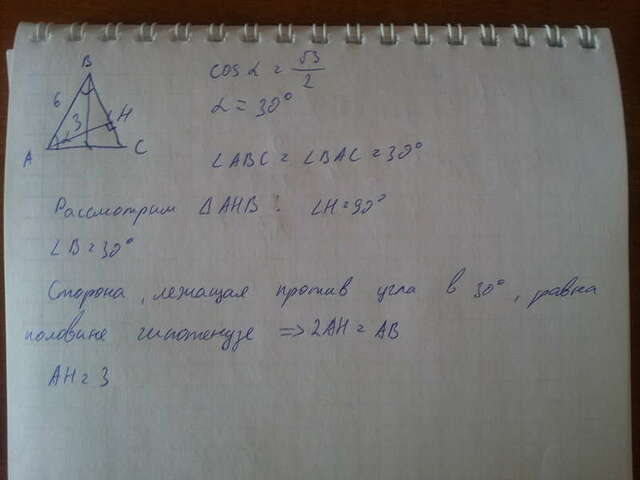 B
6
3
H
α
A
C
cos α = √3/2
α = 30°
∠ABC = ∠BAC = 30°
Рассмотрим △AHB: ∠H = 90°
∠B = 30°
Сторона, лежащая против угла в 30°, равна
половине гипотенузе => 2AH = AB
AH = 3